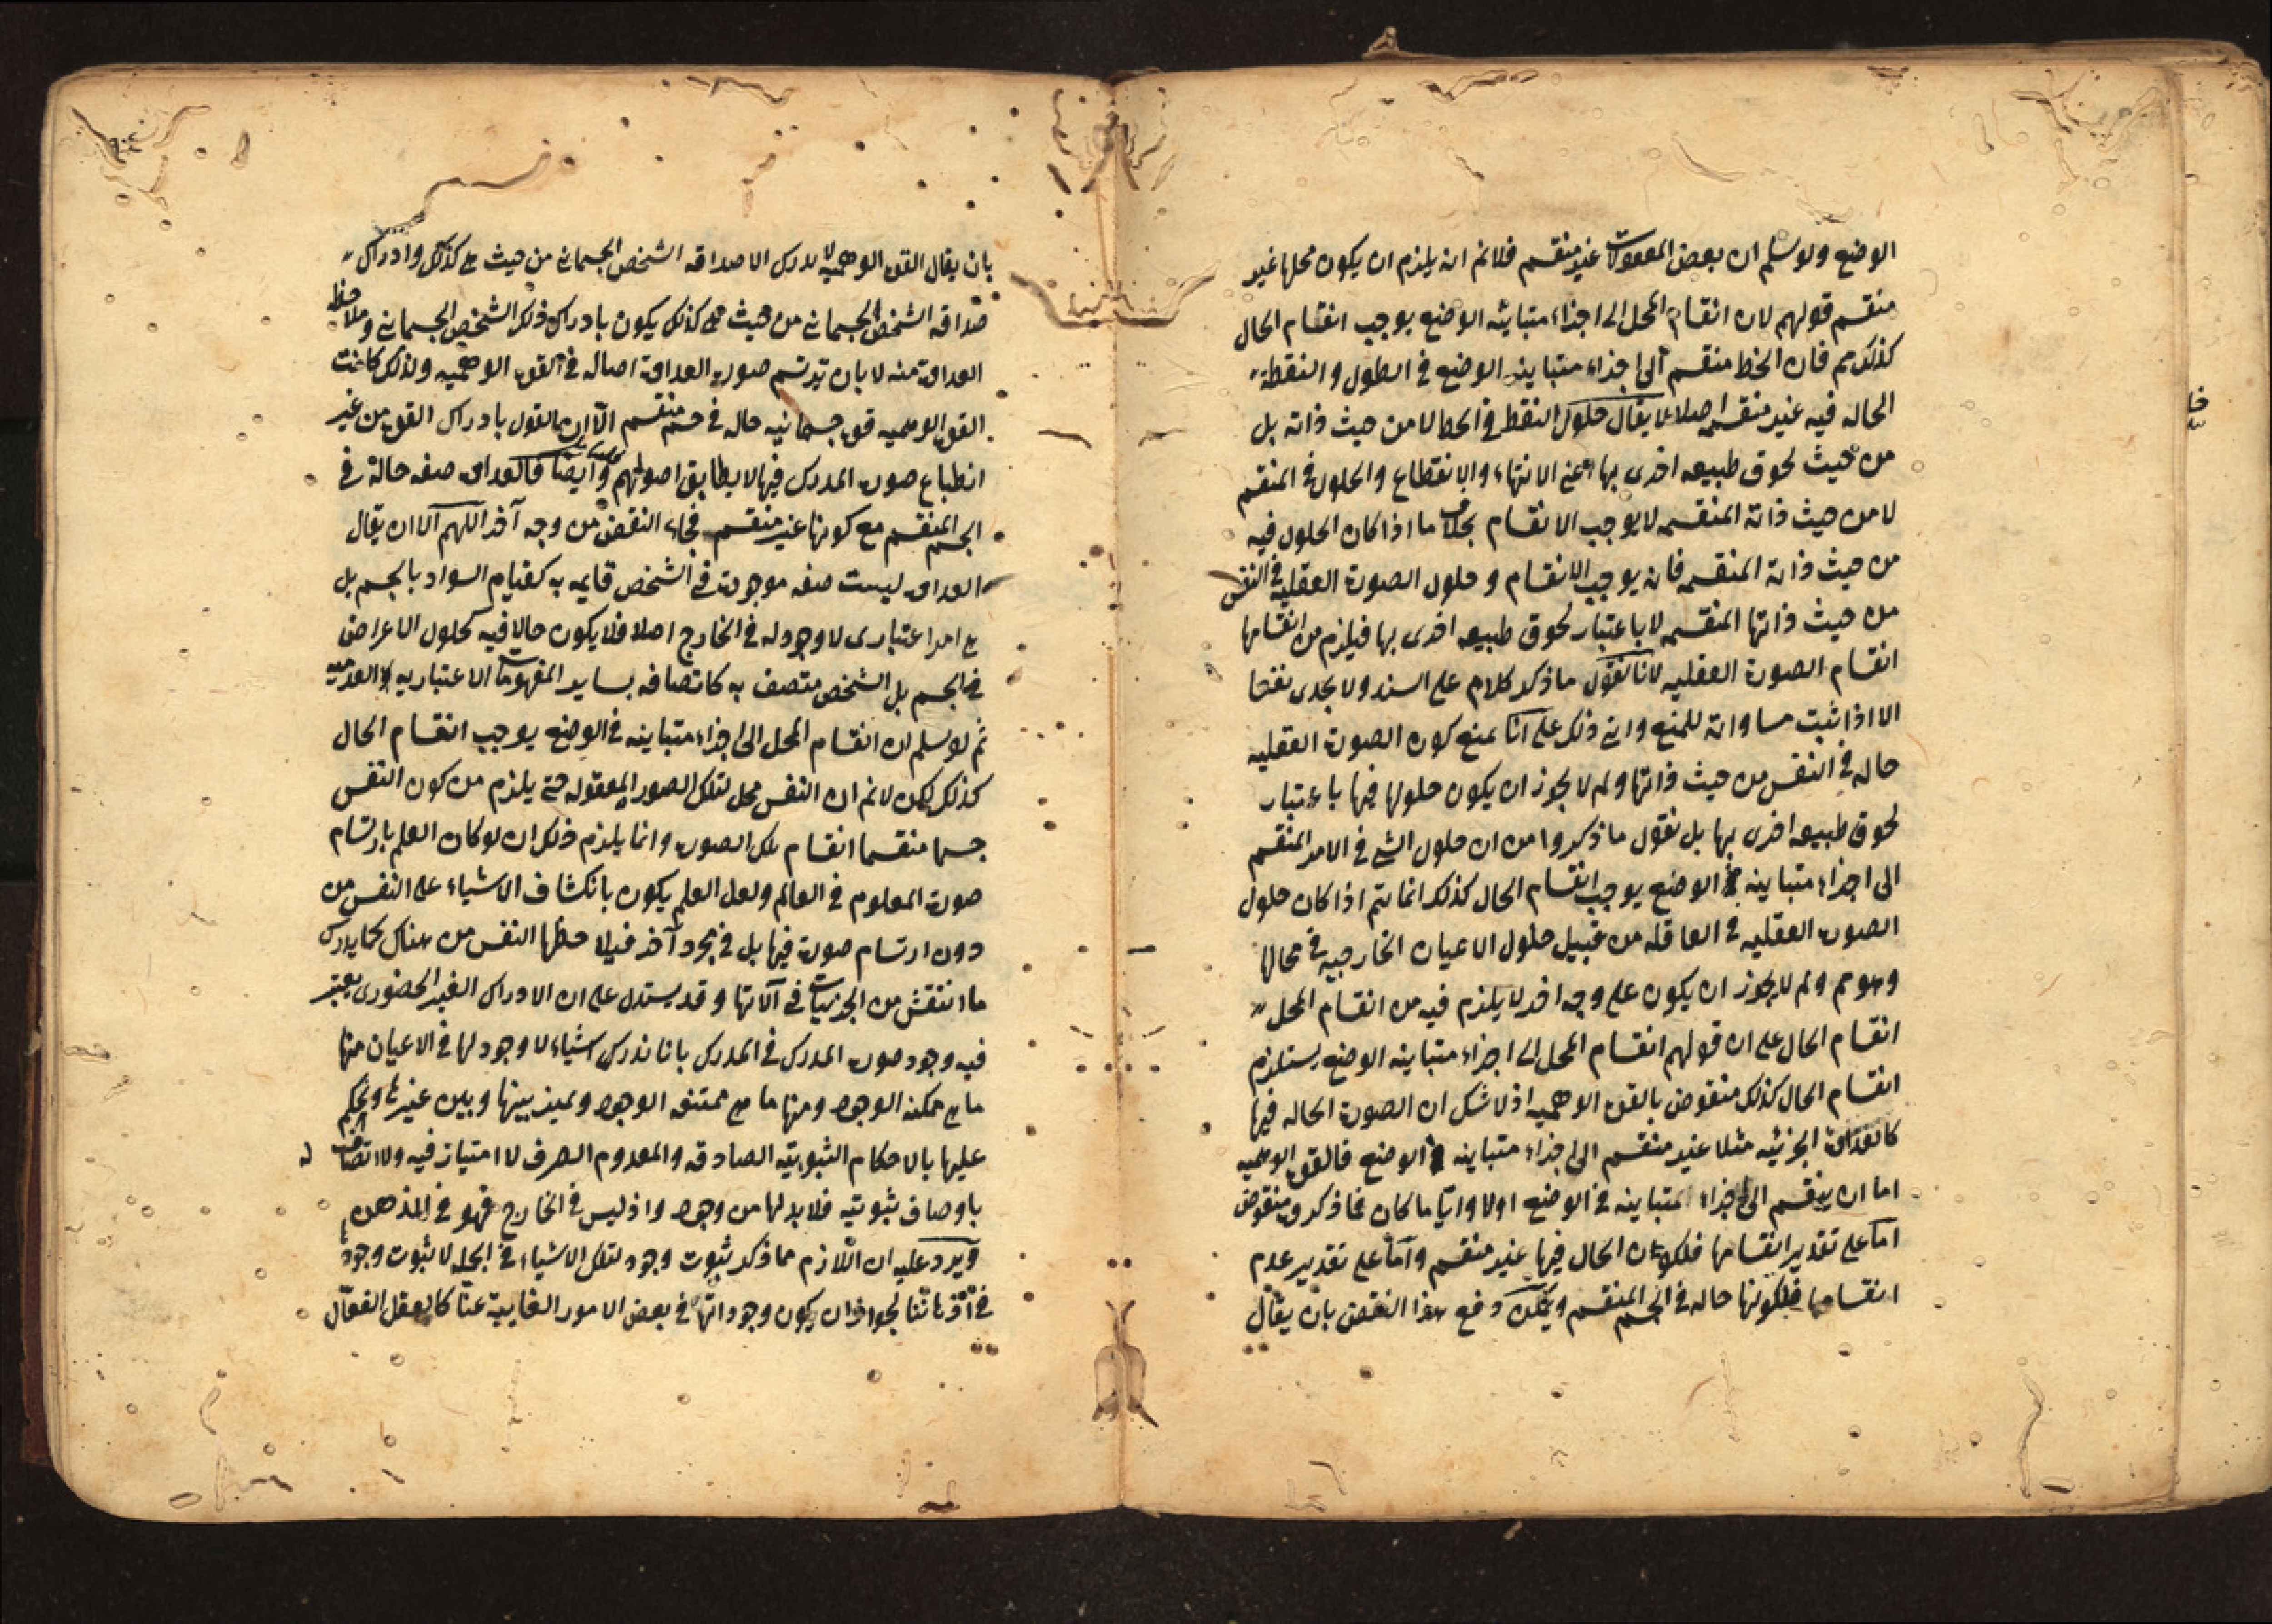 الوضع ولو سلم ان بعض المعقولات غير منقسم فلانم انه يلزم ان يكون محلها غير
منقسم قولهم لان انقسام المحل الى اجزاء متباينه الوضع يوجب انقسام الحال
كذلك مم فان الخط منقسم الى اجزاء متباينه الوضع في الطول والنقطة
الحاله فيه غير منقسمه اصلا لا يقال حلول النقطه في الخط لا من حيث ذاته بل
من حيث لحوق طبيعه اخرى بها اعني الانتهاء والانقطاع والحلول في المنقسم
لا من حيث ذاته المنقسمه لا يوجب الانقسام بخلاف ما اذا كان الحلول فيه
من حيث ذاته المنقسمه فانه يوجب الانقسام وحلول الصورة العقليه في النفس
من حيث ذاتها المنقسمه لا باعتبار لحوق طبيعه اخرى بها فيلزم من انقسامها
انقسام الصورة العقليه لانا نقول ما ذكر كلام على السند ولا يجدى نفعا
الا اذا ثبت مساواته للمنع واني ذلك على انا نمنع كون الصورة العقليه
حاله في النفس من حيث ذاتها ولم لا يجوز ان يكون حلولها فيها باعتبار
لحوق طبيعه اخرى بها بل نقول ما ذكروا من ان حلول الشئ في الامر المنقسم
الى اجزاء متباينه في الوضع يوجب انقسام الحال كذلك انما يتم اذا كان حلول
الصورة العقليه في العاقله من قبيل حلول الاعيان الخارجيه في محالها
وهو مم ولم لا يجوز ان يكون على وجه اخر لا يلزم فيه من انقسام المحل
انقسام الحال على ان قولهم انقسام المحل الى اجزاء متباينه الوضع يستلزم
انقسام الحال كذلك منقوض بالقوة الوهميه اذ لا شك ان الصورة الحاله فيها
كالعداوة الجزئيه مثلا غير منقسم الى اجزاء متباينه في الوضع فالقوة الوهميه
اما ان ينقسم الى اجزاء متباينه في الوضع اولا وايا ما كان فما ذكروه منقوض
اما على تقدير انقسامها فلكون الحال فيها غير منقسم واما على تقدير عدم
انقسامها فلكونها حاله في الجسم المنقسم ويمكن دفع هذا النقض بان يقال
بان يقال القوة الوهميه لا يدرك الا صداقه الشخص الجسماني من حيث هي كذلك وادراك
صداقه الشخص الجسماني من حيث هي كذلك يكون بادراك ذلك الشخص الجسماني وملاحظه
العداوة منه لا بان ترتسم صورة العداوة اصاله في القوة الوهميه ولذلك كانت
القوة الوهميه قوة جسمانيه حاله في جسم منقسم الا ان القول بادراك القوة من غير
انطباع صورة المدرك فيها لا يطابق اصولهم وايضا فالعداوة صفه حالة في
الجسم المنقسم مع كونها غير منقسم فجاء النقض من وجه آخر اللهم الا ان يقال
العداوة ليست صفه موجودة في الشخص قايمه به كقيام السواد بالجسم بل
هي امر اعتبارى لا وجود له في الخارج اصلا فلا يكون حالا فيه كحلول الاعراض
في الجسم بل الشخص متصف به كاتصافه بساير المفهومات الاعتباريه العدميه
ثم لو سلم ان انقسام المحل الى اجزاء متباينه في الوضع يوجب انقسام الحال
كذلك لكن لانم ان النفس محل لتلك الصور المعقوله حتى يلزم من كون النفس
جسما منقسما انقسام تلك الصورة وانما يلزم ذلك ان لو كان العلم بارتسام
صورة المعلوم في العالم ولعل العلم يكون بانكشاف الاشياء على النفس من
دون ارتسام صورة فيها بل في مجرد آخر فيلاحظها النفس من هناك كما يدرك
ما انتقش من الجزئيات في آلاتها وقد يستدل على ان الادراك الغير الحضورى يعتبر
فيه وجود صورة المدرك في المدرك بانا ندرك اشياء لا وجود لها في الاعيان منها
ما هي ممكنه الوجود ومنها ما هي ممتنعه الوجود ونميز بينها وبين غيرها ونحكم
عليها بالاحكام الثبوتيه الصادقه والمعدوم الصرف لا امتياز فيه ولا اتصاف له
باوصاف ثبوتيه فلا بد لها من وجود واذ ليس في الخارج فهو في الذهن
ويرد عليه ان اللازم مما ذكر ثبوت وجود لتلك الاشياء في الجمله لا ثبوت وجود
في اذهاننا لجواز ان يكون وجوداتها في بعض الامور الغايبة عنا كالعقل الفعال